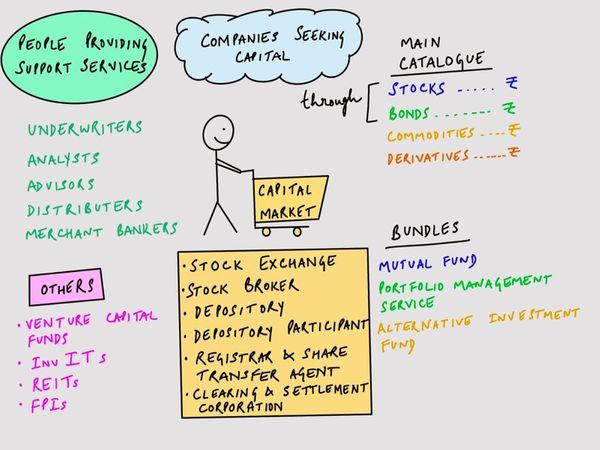 PEOPLE PROVIDING
SUPPORT SERVICES
COMPANIES SEEKING
CAPITAL
MAIN
CATALOGUE
through
STOCKS ..... ₹
BONDS ....... ₹
COMMODITIES .... ₹
DERIVATIVES ...... ₹
UNDERWRITERS
ANALYSTS
ADVISORS
DISTRIBUTERS
MERCHANT BANKERS
CAPITAL
MARKET
BUNDLES
MUTUAL FUND
PORTFOLIO MANAGEMENT
SERVICE
ALTERNATIVE INVESTMENT
FUND
OTHERS
• VENTURE CAPITAL
FUNDS
• INVITS
• REITS
• FPIS
• STOCK EXCHANGE
• STOCK BROKER
• DEPOSITORY
• DEPOSITORY PARTICIPANT
• REGISTRAR & SHARE
TRANSFER AGENT
• CLEARING & SETTLEMENT
CORPORATION